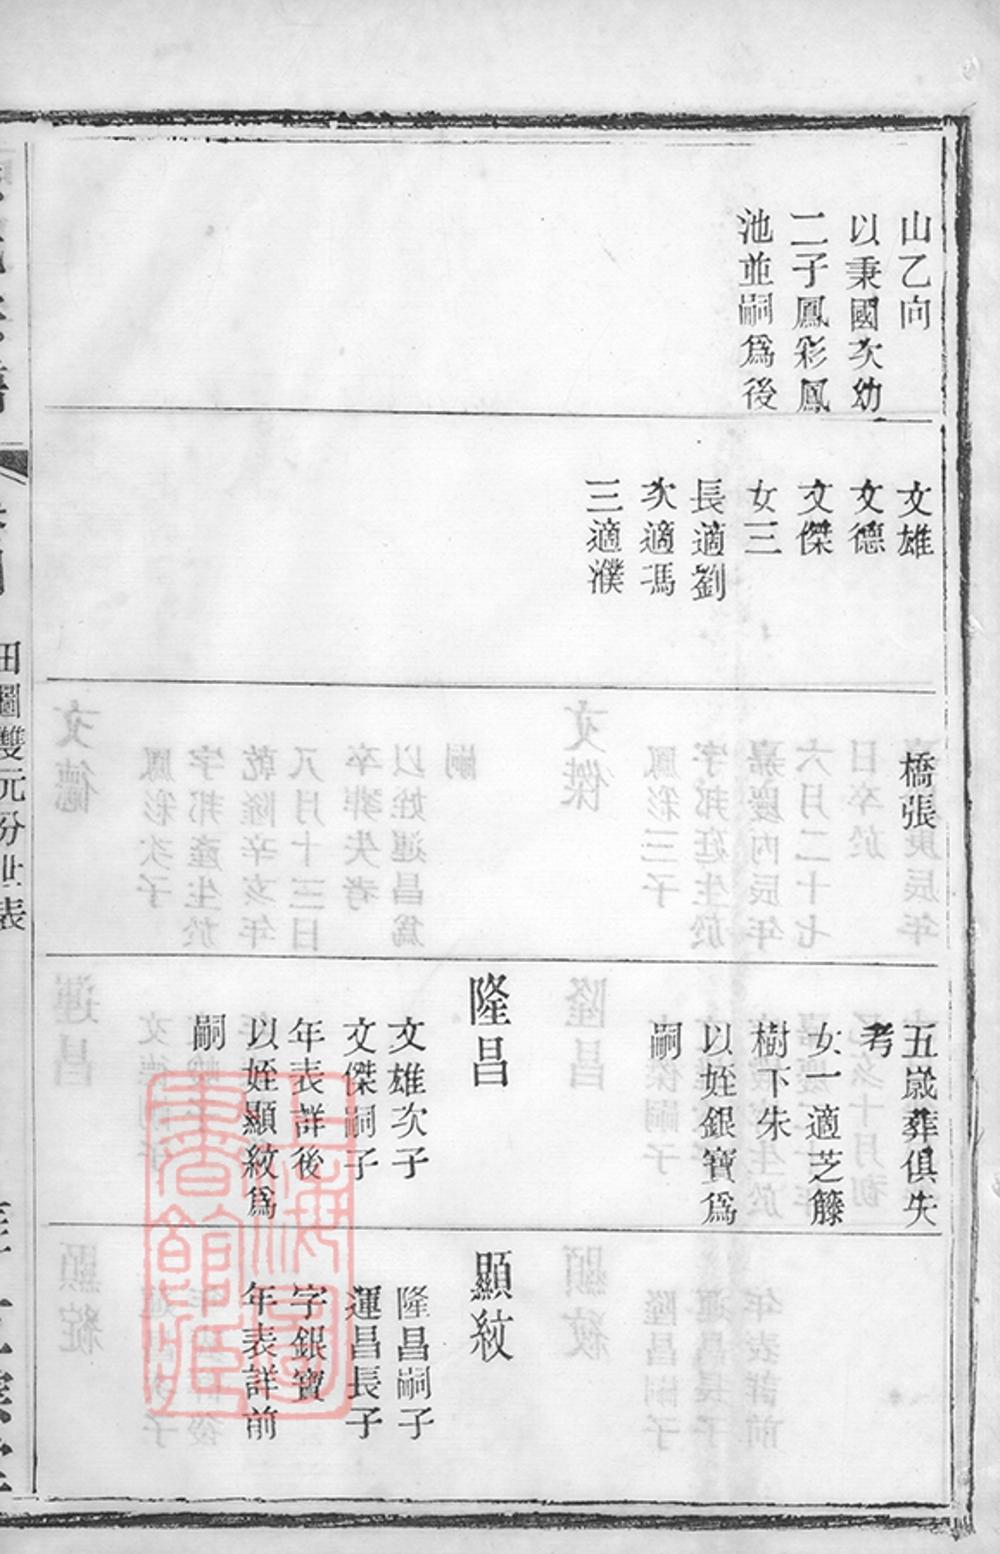 山乙向
以秉國次幼
二子鳳彩鳳
池並嗣爲後
文雄
文德
文傑
女三
長適劉
次適馮
三適濮
橋張
五歲葬俱失
考
女一適芝籐
樹下朱
以姪銀寶爲
嗣
隆昌
文雄次子
文傑嗣子
年表詳後
以姪顯紋爲
嗣
顯紋
隆昌嗣子
運昌長子
字銀寶
年表詳前
田圖雙元份世表
上海圖書館藏